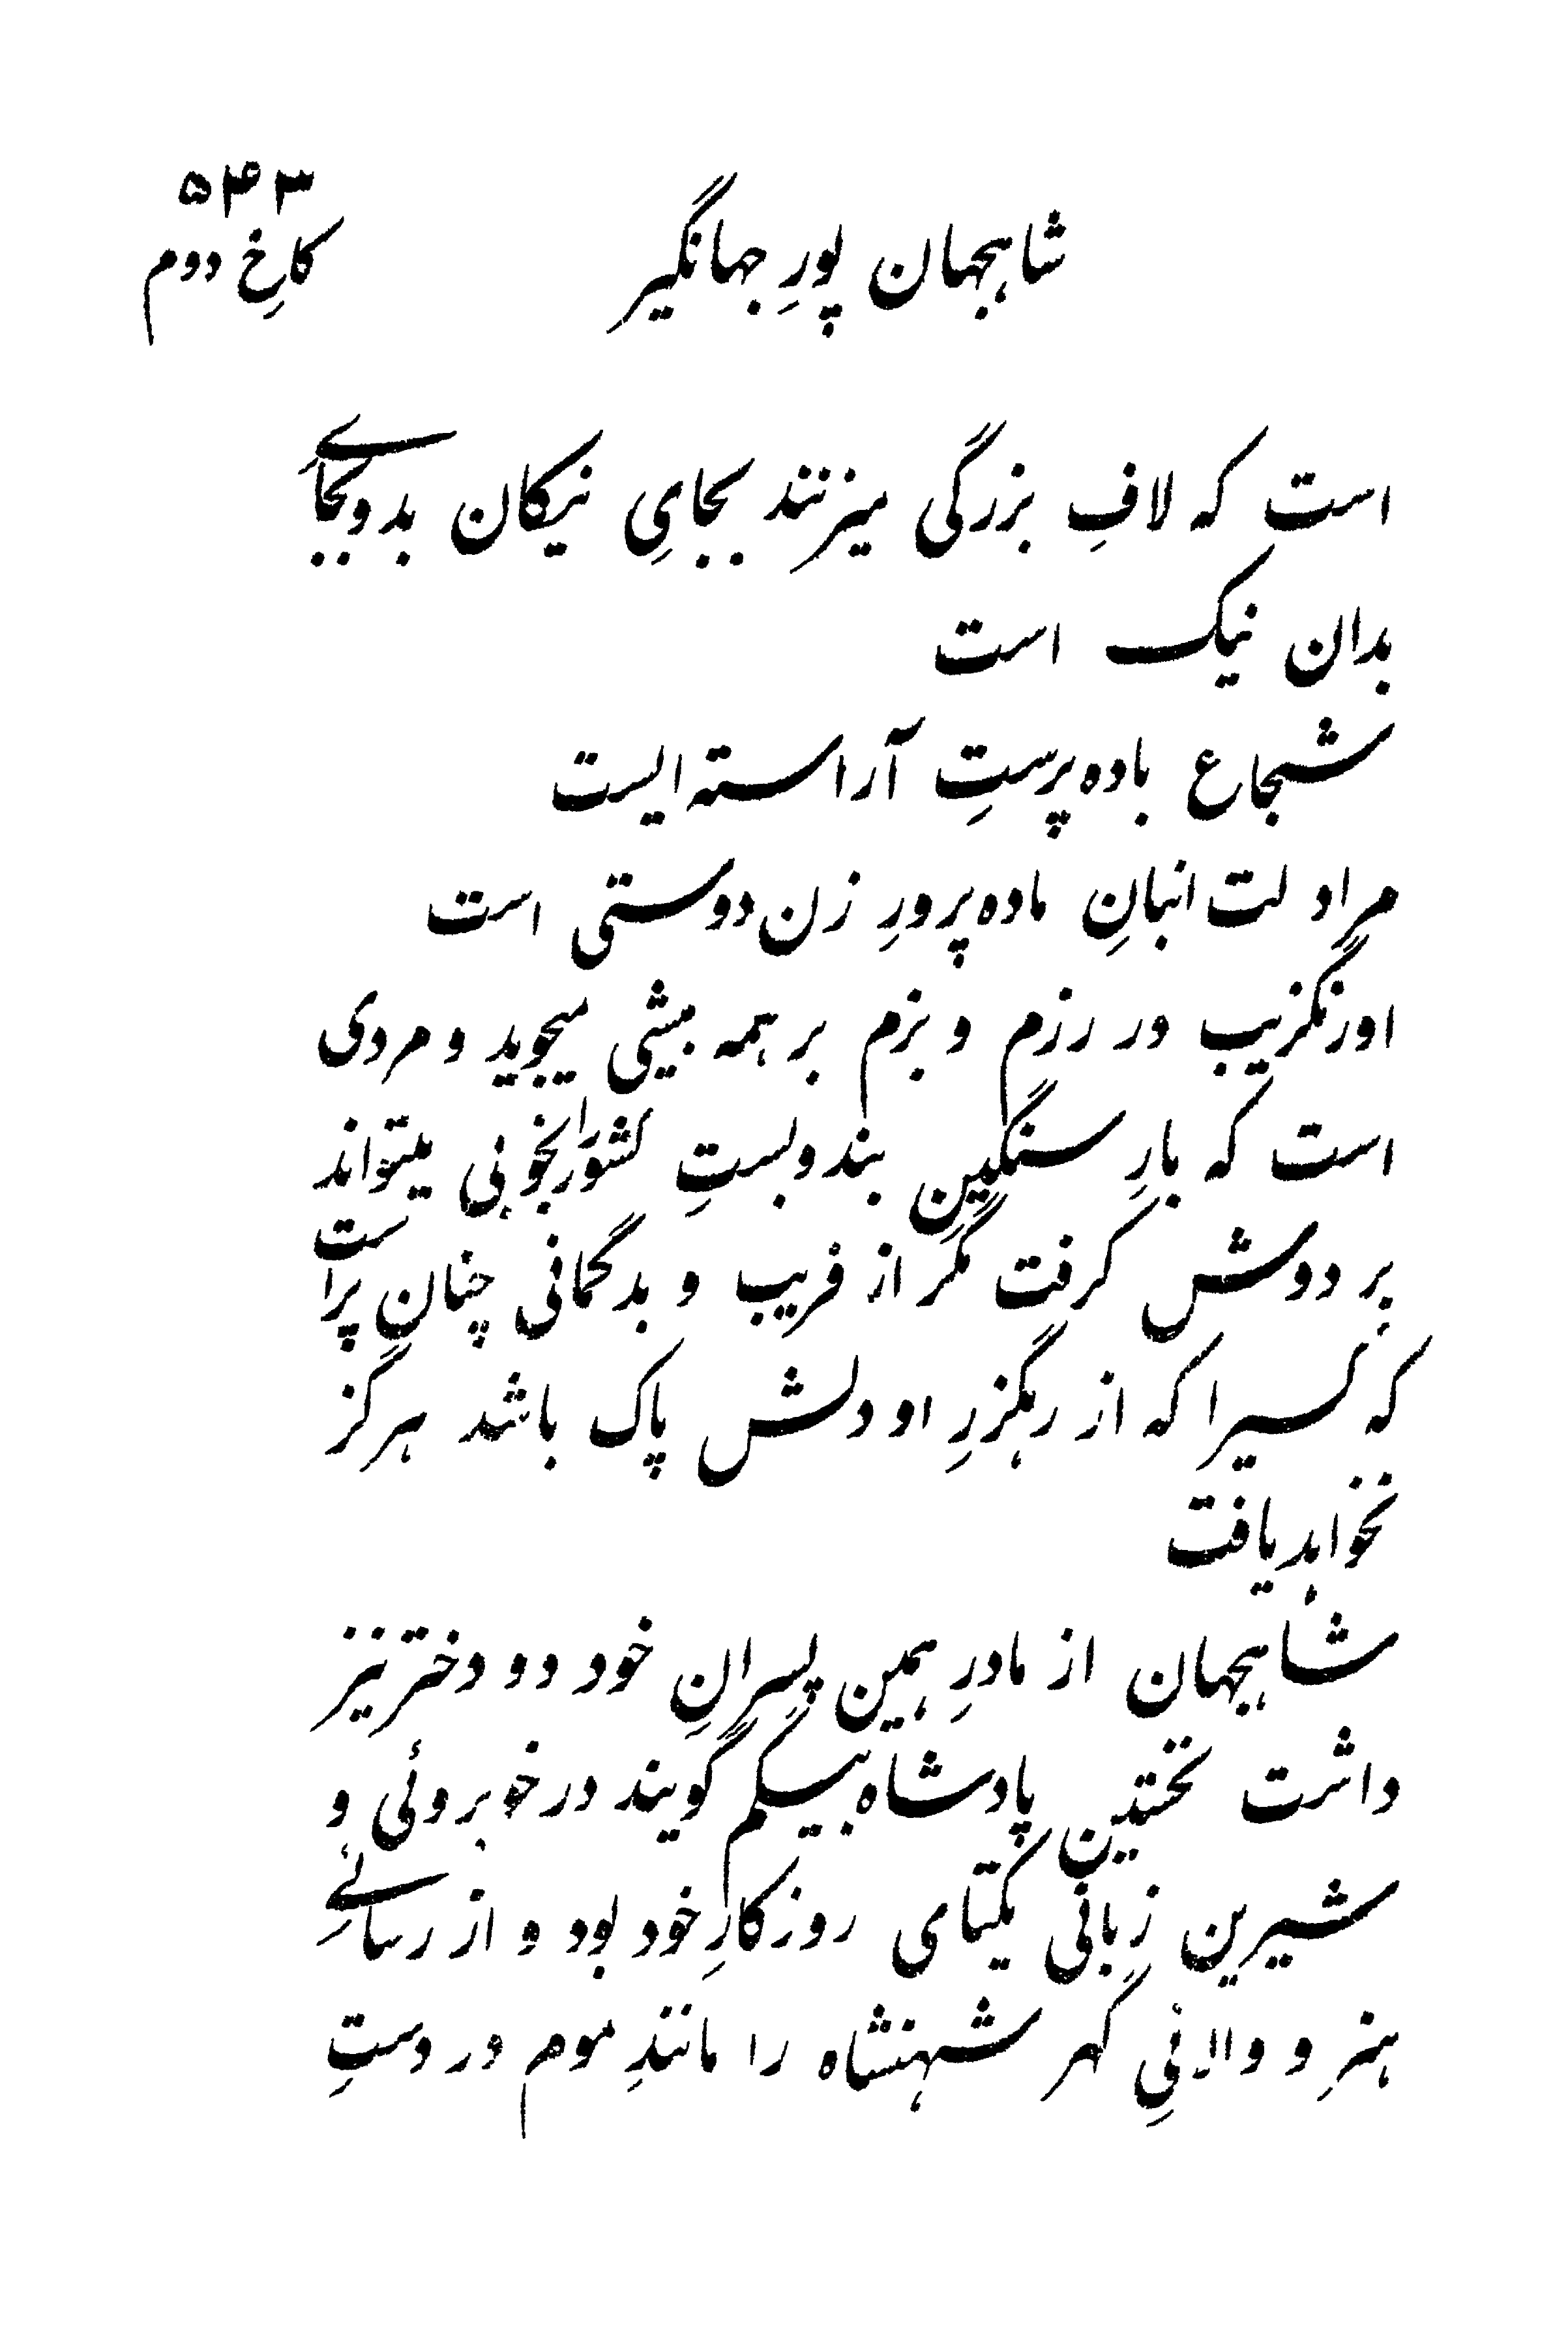 ۵۴۳
شاهجهان پورِ جهانگیر
کاخِ دوم
است که لافِ بزرگی میزنند بجایِ نیکان بد و بجاے
بدان نیک است
شجاع باده پرستِ آراسته ایست
مراد لت انبانِ ماده پرورِ زن دوستی است
اورنگزیب در رزم و بزم بر همه بیشی میجوید و مردی
است که بارِ سنگینِ بند و بستِ کشور را بخوبی میتواند
بر دوش گرفت مگر از فریب و بدگمانی چنان پر است
که کسیرا که از رهگزرِ او دلش پاک باشد هرگز
نخواهد یافت
شاهجهان از مادرِ همین پسرانِ خود دو دختر نیز
داشت نخستین پادشاه بیگم گویند در خوبروئی و
شیرین زبانی یکتای روزگارِ خود بود و از رسائے
هنر و والائیِ گهر شهنشاه را مانندِ موم در دستِ